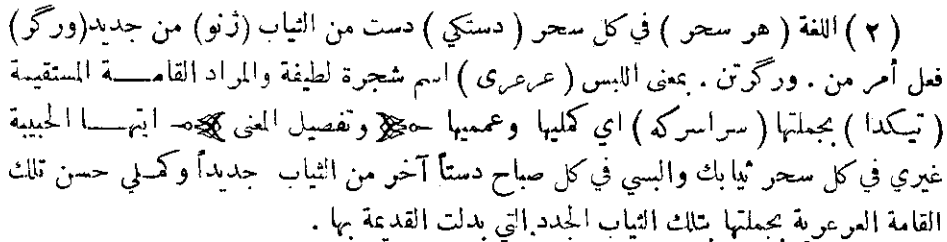 ( ٢ ) اللغة ( هر سحر ) في كل سحر ( دستكي ) دست من الثياب ( ژنو ) من جديد ( ور گر )
فعل أمر من . ور گرتن . بمعنى اللبس ( عرعرى ) اسم شجرة لطيفة والمراد القامـــة المستقيمة
( تيكدا ) بجملتها ( سراسركه ) اي كمليها وعمميها وتفصيل المعنى ايتهـــا الحبيبة
غيري في كل سحر ثيابك والبسي في كل صباح دستاً آخر من الثياب جديداً وكمـلي حسن تلك
القامة العرعرية بجملتها بتلك الثياب الجدد التي بدلت القديمة بها .